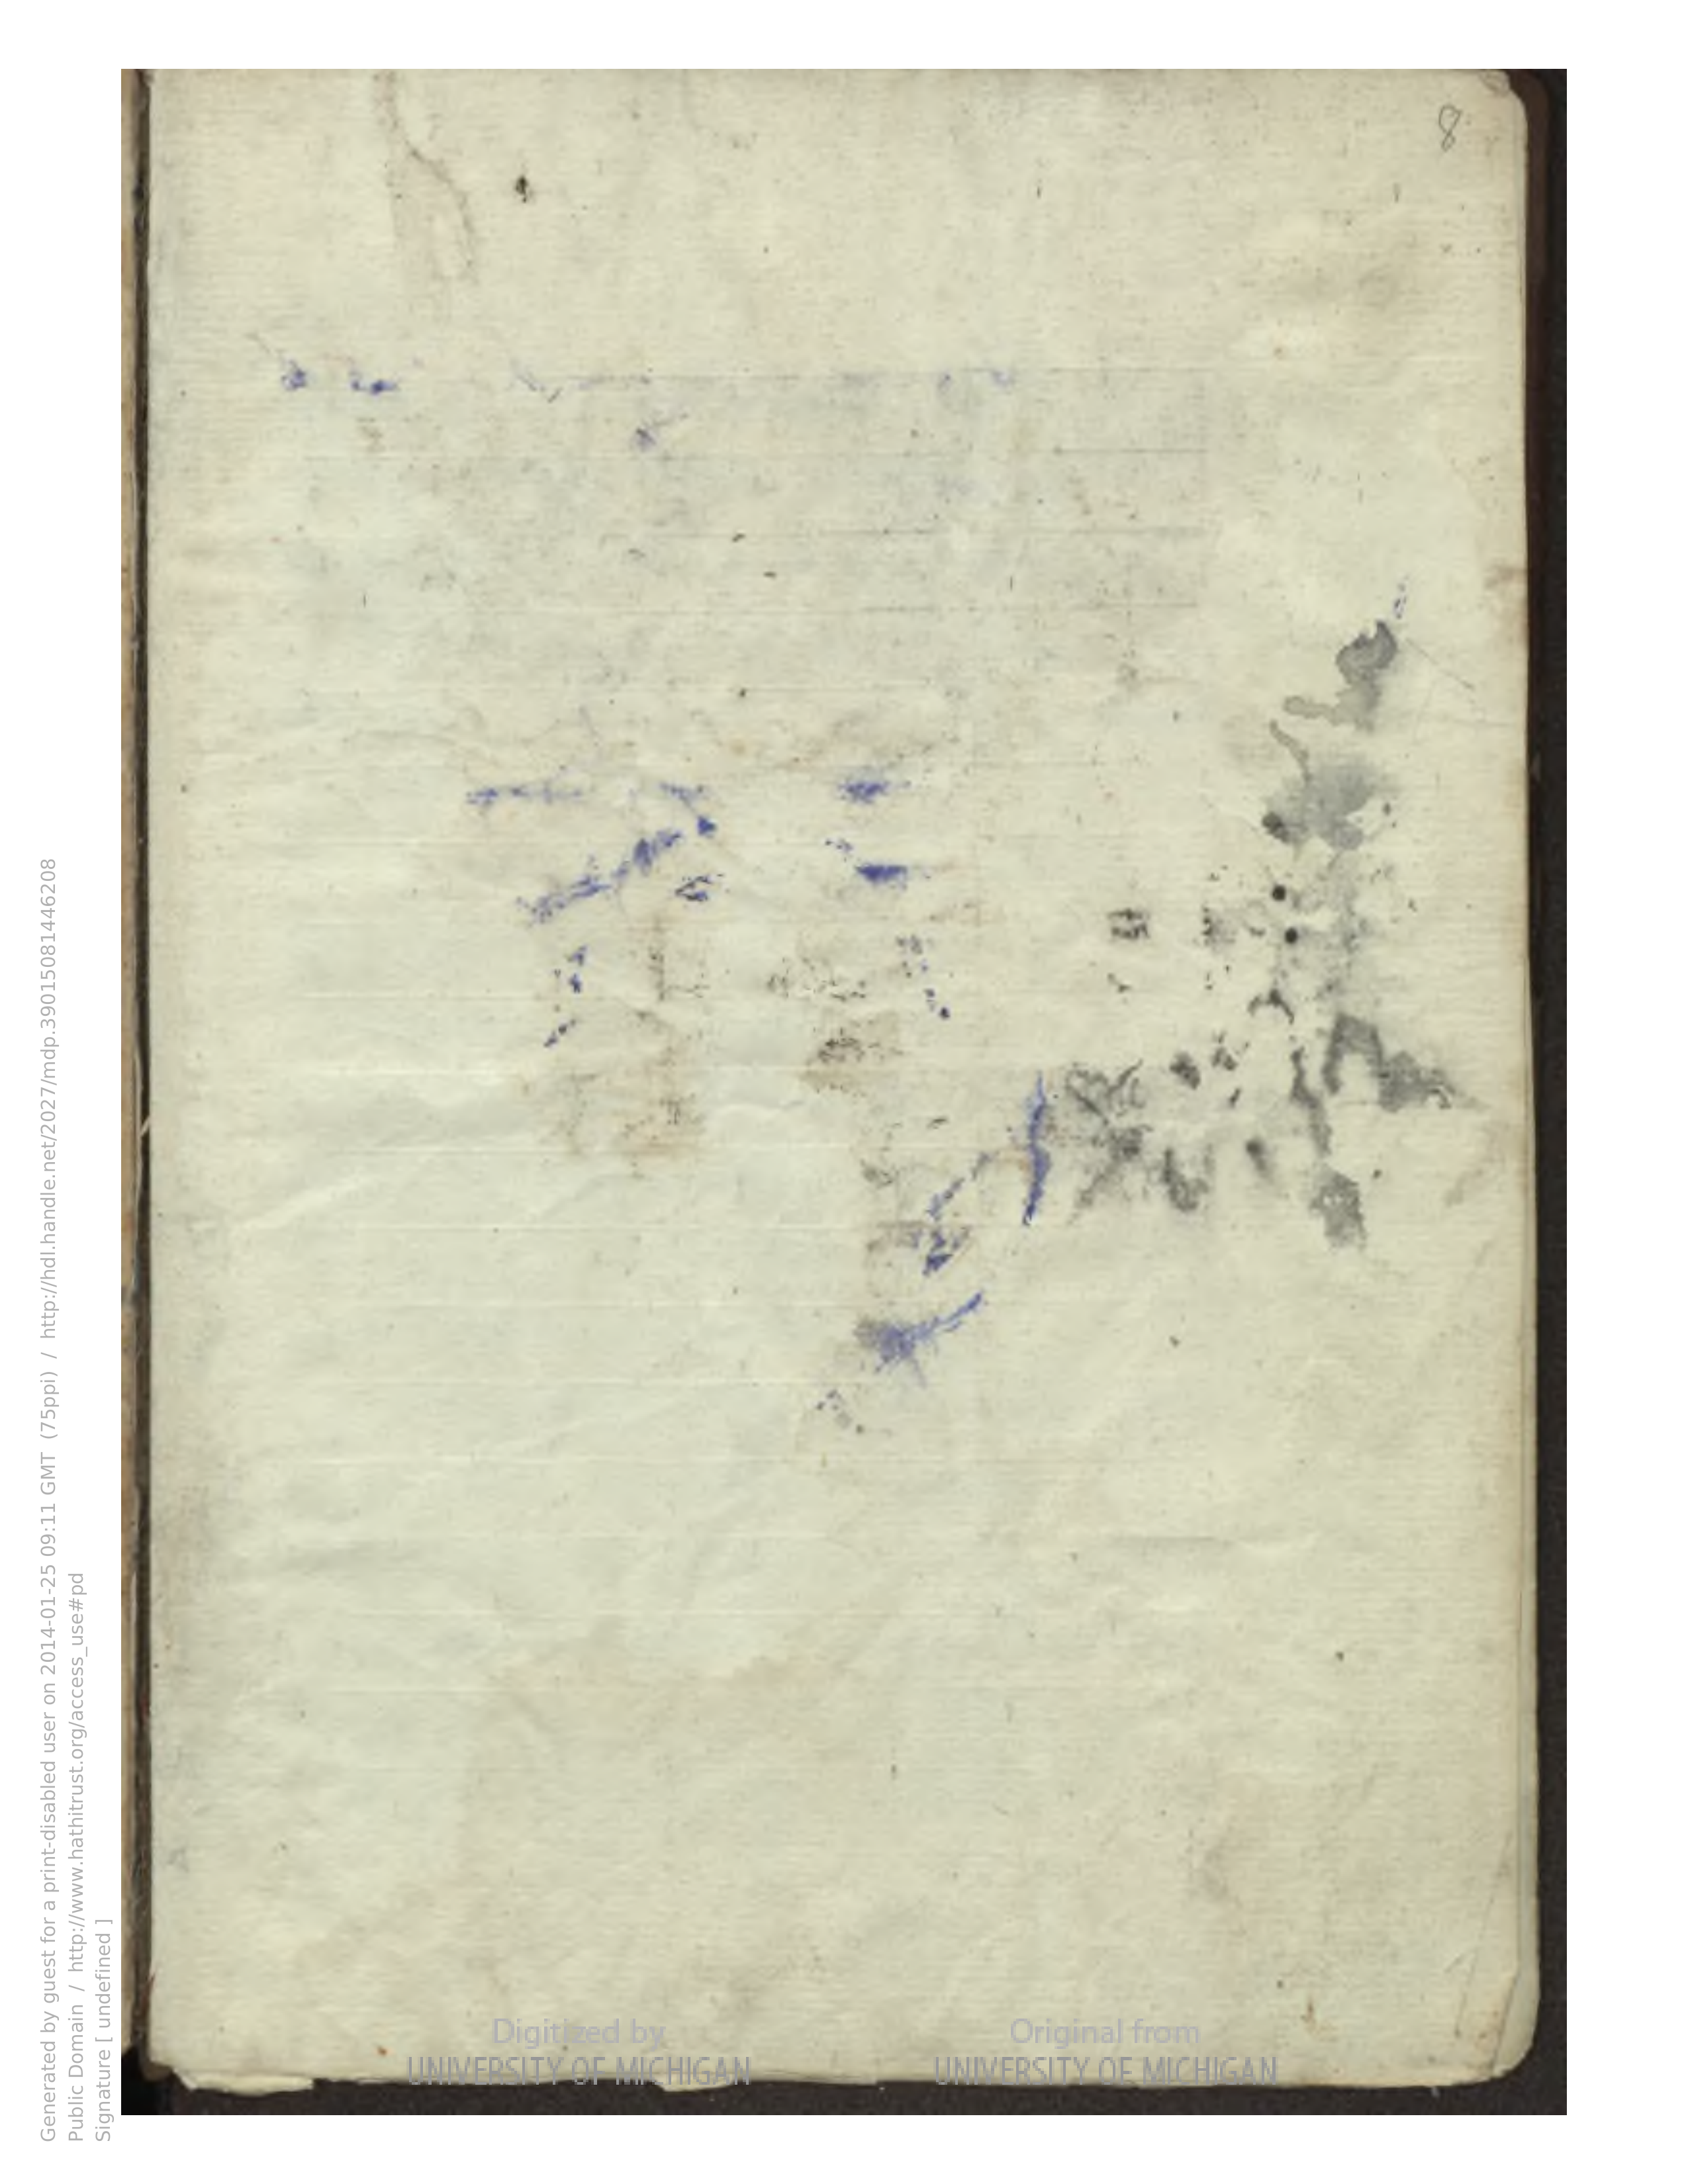 8
Generated by guest for a print-disabled user on 2014-01-25 09:11 GMT (75ppi) / http://hdl.handle.net/2027/mdp.39015081446208
Public Domain / http://www.hathitrust.org/access_use#pd
Signature [ undefined ]
Digitized by
UNIVERSITY OF MICHIGAN
Original from
UNIVERSITY OF MICHIGAN